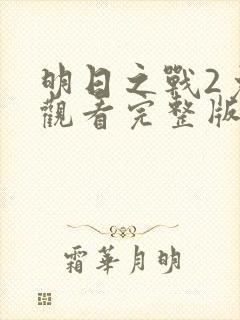 明日之戰2
觀看完整版
霜華月明